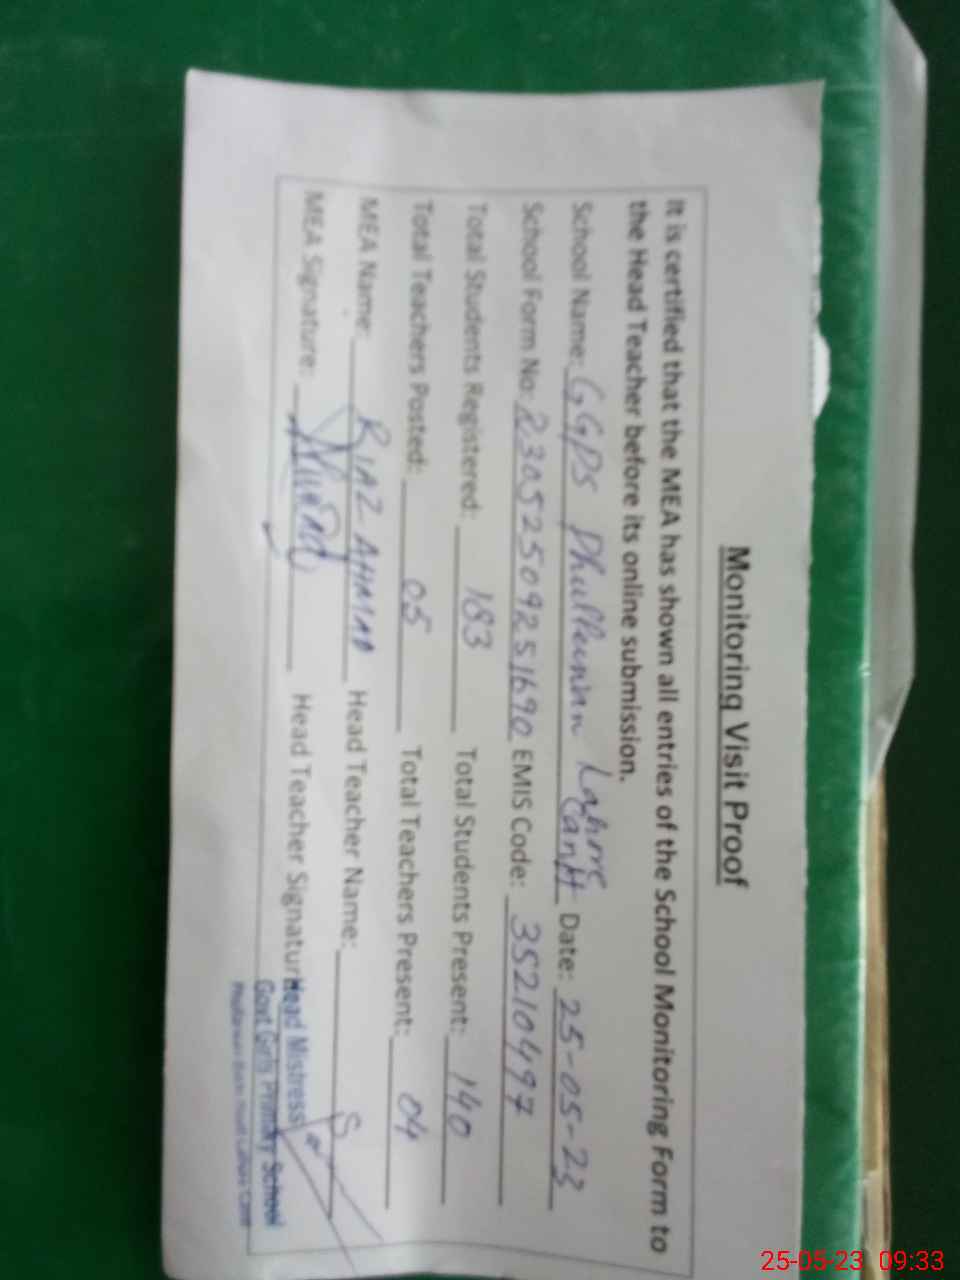 Monitoring Visit Proof
It is certified that the MEA has shown all entries of the School Monitoring Form to
the Head Teacher before its online submission.
School Name: GGPS Phullerwan Lahore Cantt Date: 25-05-23
School Form No: R3052509251690 EMIS Code: 35210497
Total Students Registered: 183 Total Students Present: 140
Total Teachers Posted: 05 Total Teachers Present: 04
MEA Name: RIAZ AHMAD Head Teacher Name:
MEA Signature: Head Teacher Signature
Head Mistress
Govt. Girls Primary School
25-05-23 09:33